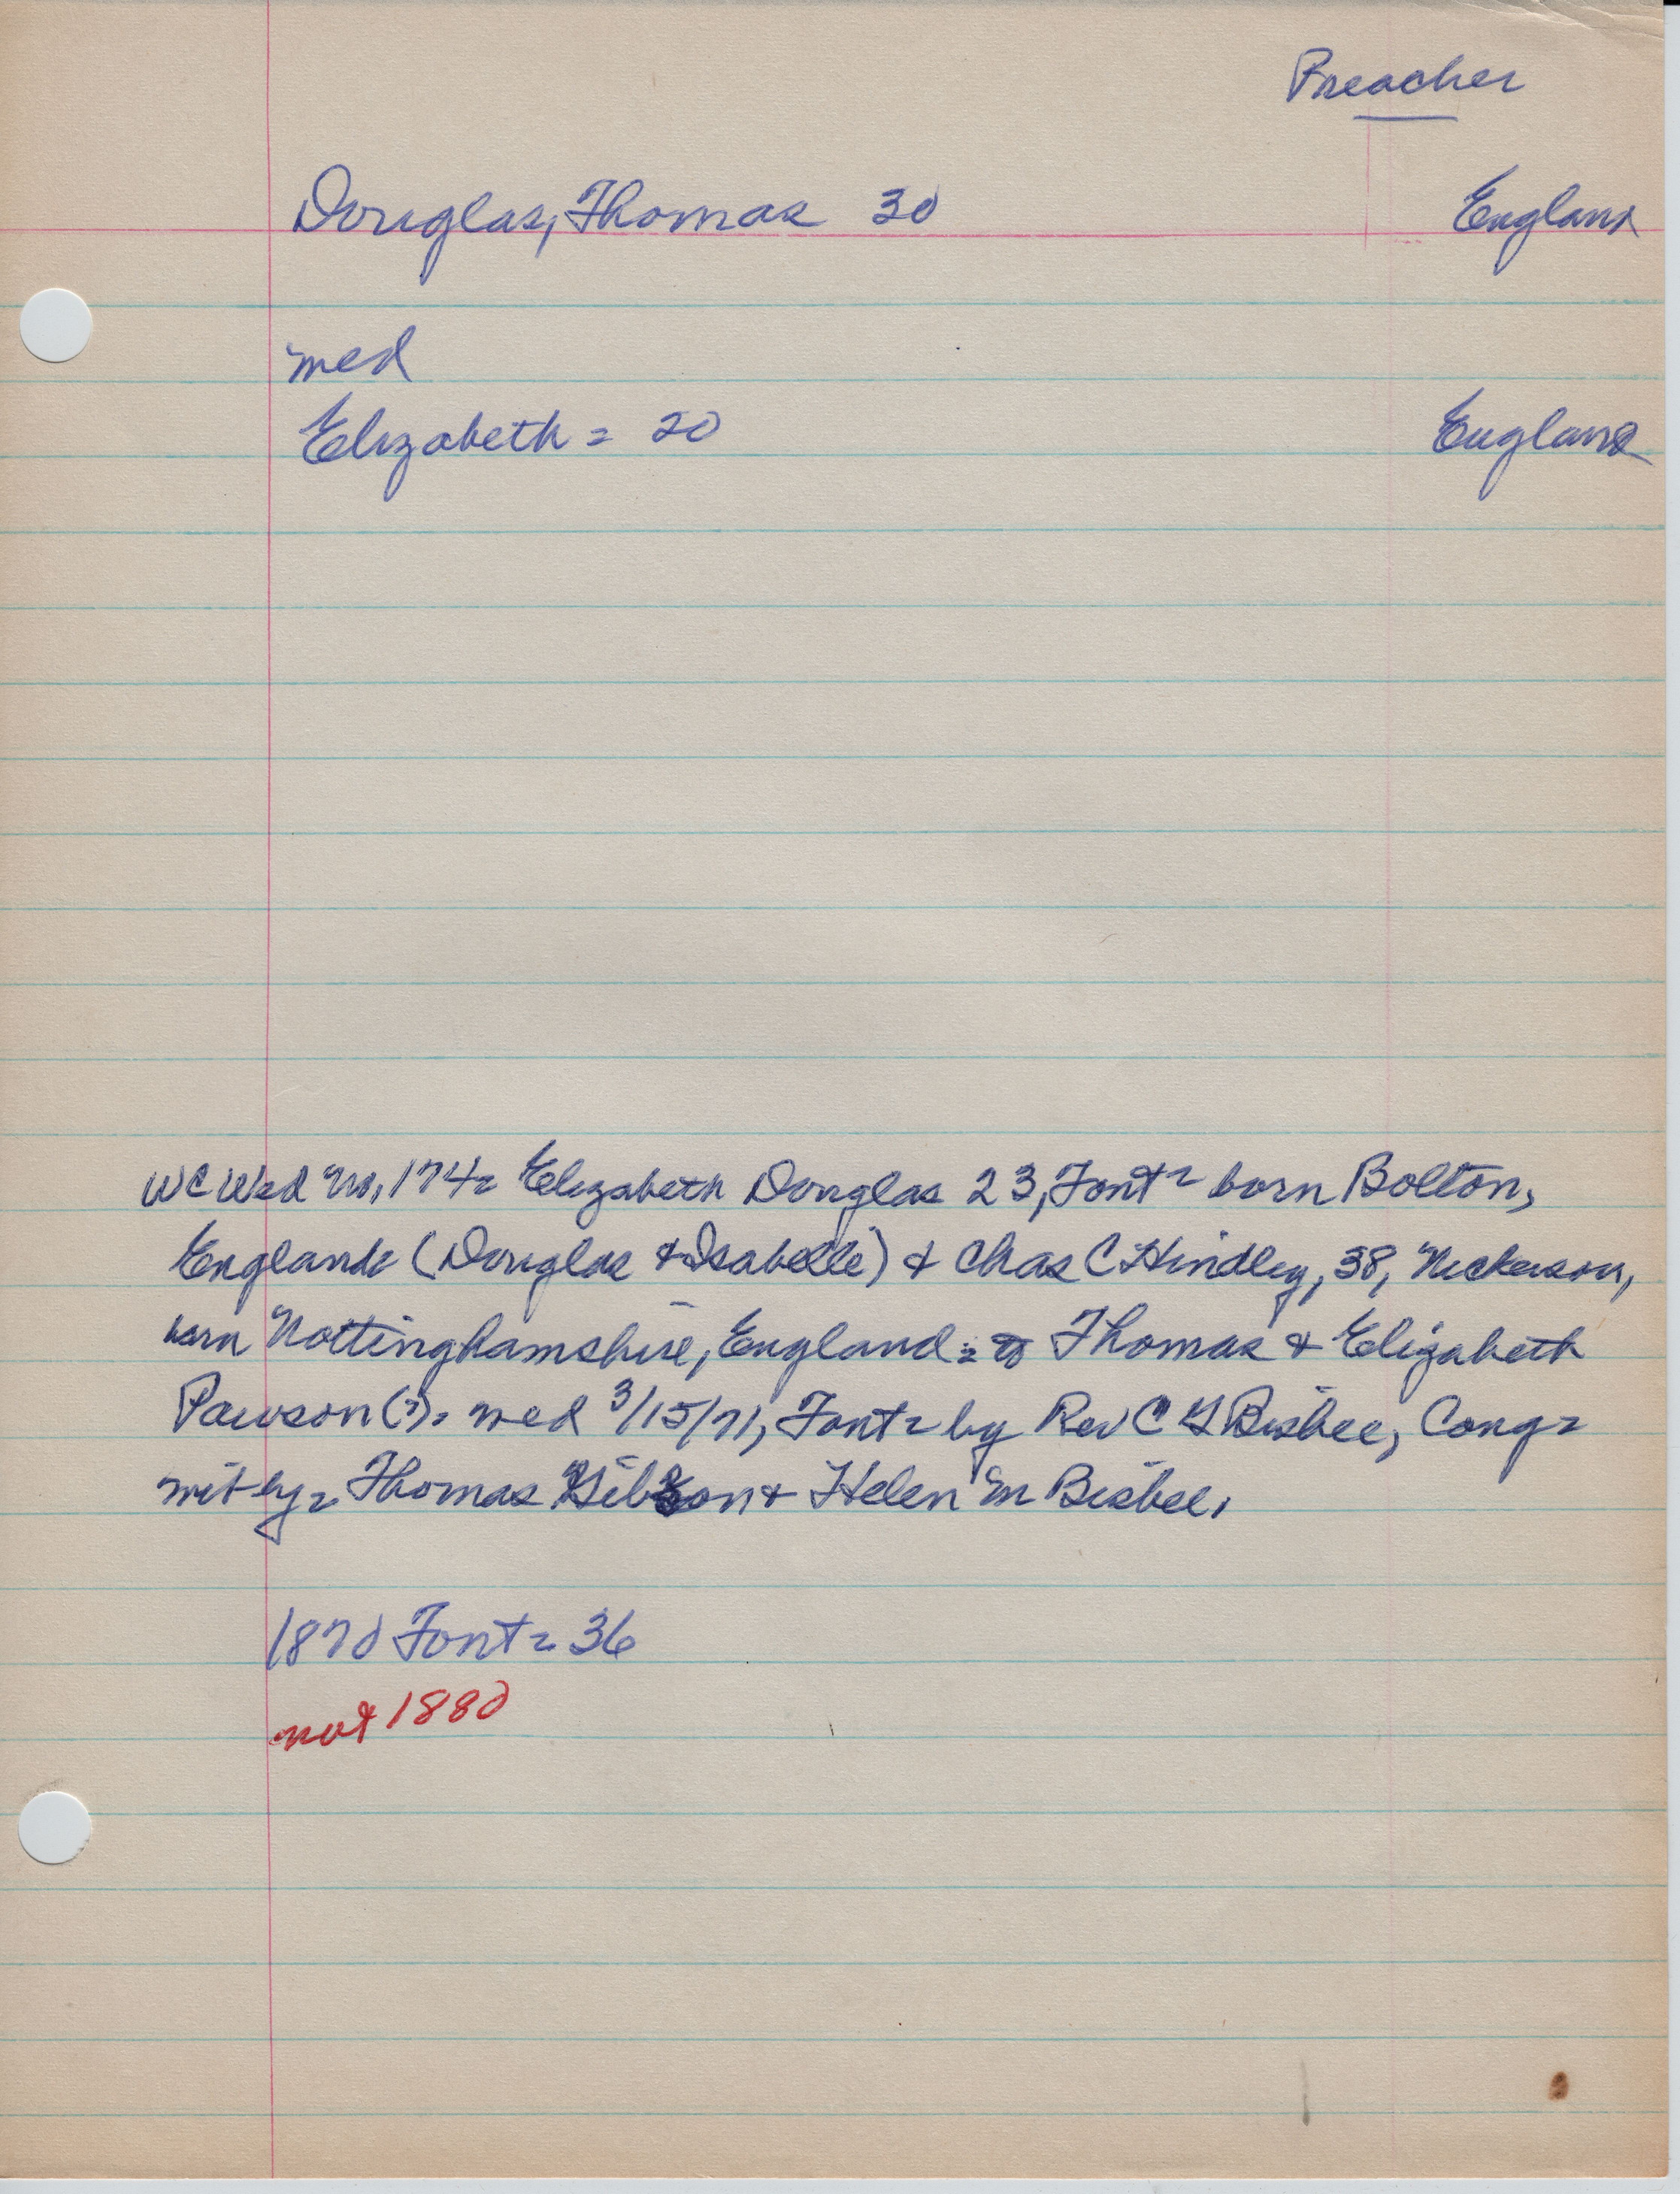 Preacher
Douglas, Thomas 30 England
med
Elizabeth = 20 England
WC Wed No, 174 = Elizabeth Douglas 23, Font = born Bolton,
England (Douglas & Isabelle) & Chas C Hindley, 38, Nickerson,
born Nottinghamshire, England = Thomas & Elizabeth
Pawson (?) = med 3/15/71, Font = by Rev C H Bisbee, Cong =
wit by = Thomas Gibson & Helen M Bisbee,
1870 Font = 36
not 1880